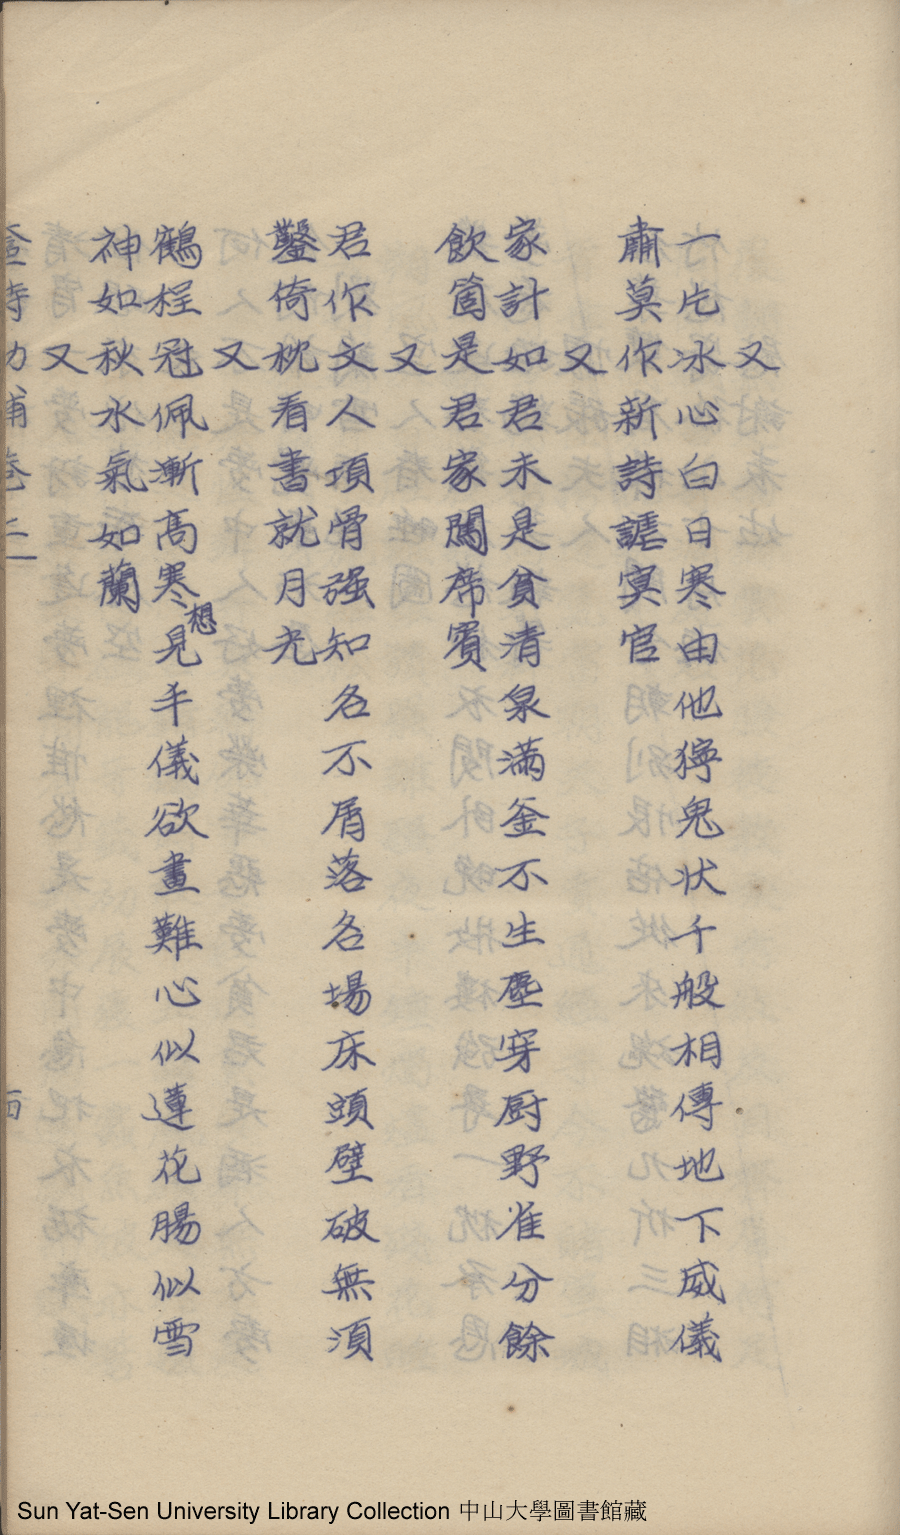 又
一片冰心白日寒由他獰鬼狀千般相傳地下威儀
肅莫作新詩謔冥官
又
家計如君未是貧清泉滿釜不生塵穿厨野雀分餘
飲箇是君家闖席賓
又
君作文人項骨强知名不屑落名場床頭壁破無須
鑿倚枕看書就月光
又
鶴桯冠佩漸高寒想見丰儀欲畫難心似蓮花腸似雪
神如秋水氣如蘭
又